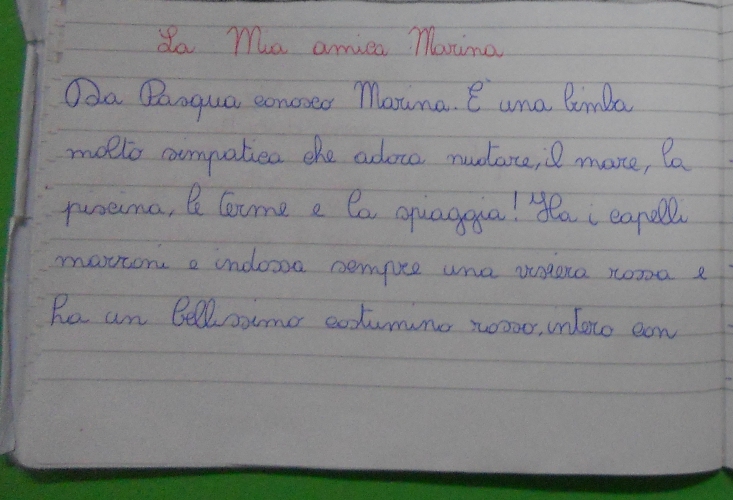 La Mia amica Marina
Da Pasqua conosco Marina. E' una bimba
molto simpatica che adora nuotare, il mare, la
piscina, le terme e la spiaggia! Ha i capelli
marroni e indossa sempre una visiera rossa e
ha un bellissimo costumino rosso, intero con